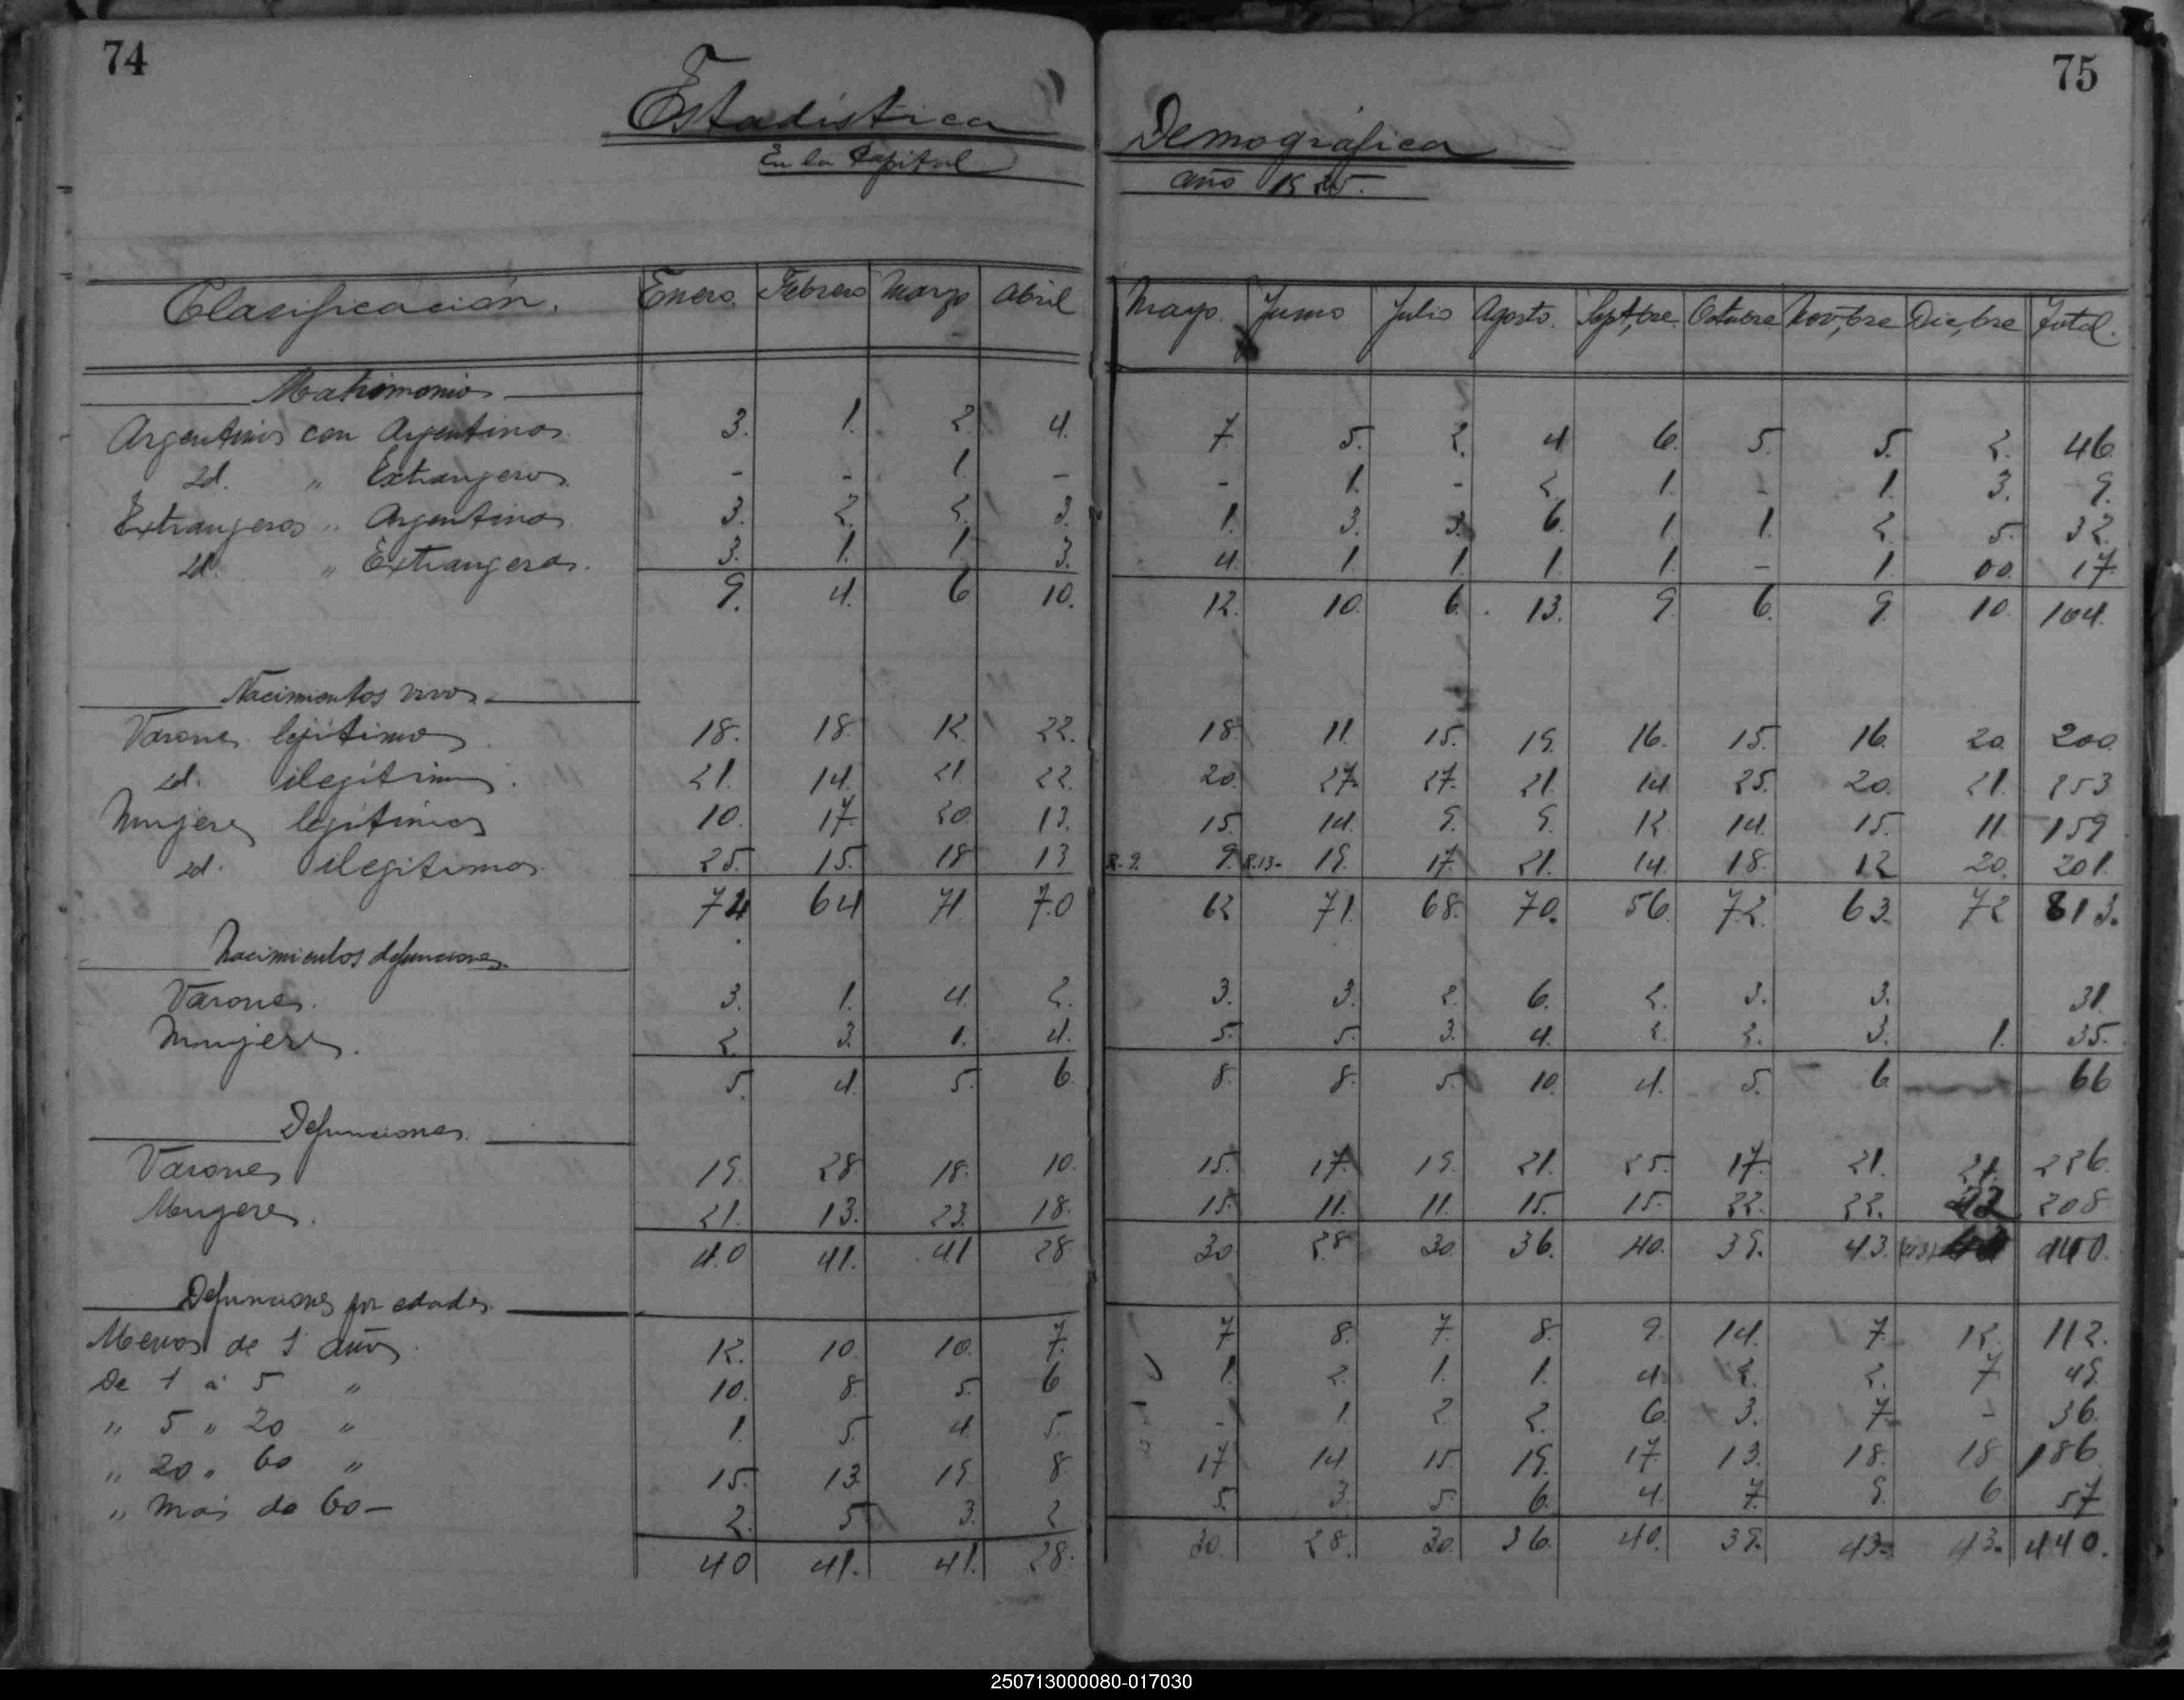 74
75
Estadística Demográfica
En la Capital año 1925.
Clasificación. Enero. Febrero Marzo Abril Mayo. Junio Julio Agosto. Sept,bre. Octubre Nov,bre Dic,bre Total.
Matrimonios
Argentinos con Argentinos 3. 1. 2. 4. 7. 5. 2. 4 6. 5. 5. 2. 46.
id. " Extrangeros - - 1 - - 1. - 2. 1. - 1. 3. 9.
Extrangeros " Argentinos 3. 2. 2. 3. 1. 3. 3. 6. 1. 1. 2. 5. 32.
id. " Extrangeros. 3. 1. 1. 3. 4. 1. 1. 1. 1. - 1. 00 17
9. 4. 6 10. 12. 10. 6. 13. 9. 6. 9. 10 104.
Nacimientos vivos
Varones legítimos 18. 18. 12. 22. 18. 11. 15. 19. 16. 15. 16. 20. 200
id. ilegítimos 21. 14. 21. 22. 20. 27. 27. 21. 14. 25. 20. 21. 253
Mujeres legítimas 10. 17. 20. 13. 15. 14. 9. 9. 12. 14. 15. 11. 159
id. ilegítimas 25. 15. 18 13 R.9. 9. R.13- 19. 17. 21. 14. 18. 12 20. 201.
74 64 71 70 62 71. 68. 70. 56. 72. 63. 72 813.
Nacimientos defunciones
Varones. 3. 1. 4. 2. 3. 3. 2. 6. 2. 3. 3. 31.
Mujeres. 2. 3. 1. 4. 5. 5. 3. 4. 2. 2. 3. 1. 35.
5. 4. 5. 6. 8. 8. 5. 10. 4. 5. 6. 66
Defunciones
Varones 19. 28 18. 10. 15. 17. 19. 21. 25. 17. 21. 21. 226.
Mugeres. 21. 13. 23. 18. 15. 11. 11. 15. 15. 22. 22. 22 208
40 41. 41 28 30 28 30 36. 40. 39. 43. (43) 440.
Defunciones por edades.
Menos de 1 años 12. 10. 10. 7. 7 8. 7. 8. 9. 14. 7. 12. 112.
De 1 á 5 " 10. 8. 5. 6 1. 2. 1. 1. 4. 2. 2. 7 49.
" 5 " 20 " 1. 5. 4. 5. - 1. 2. 2. 6. 3. 7 - 36.
" 20 " 60 " 15. 13. 19. 8 17 14 15. 19. 17. 13. 18. 18 186
" mas de 60 - 2. 5 3. 2 5. 3. 5. 6. 4. 7. 9. 6 57
40 41. 41. 28. 30. 28. 30. 36. 40. 39. 43. 43. 440.
250713000080-017030